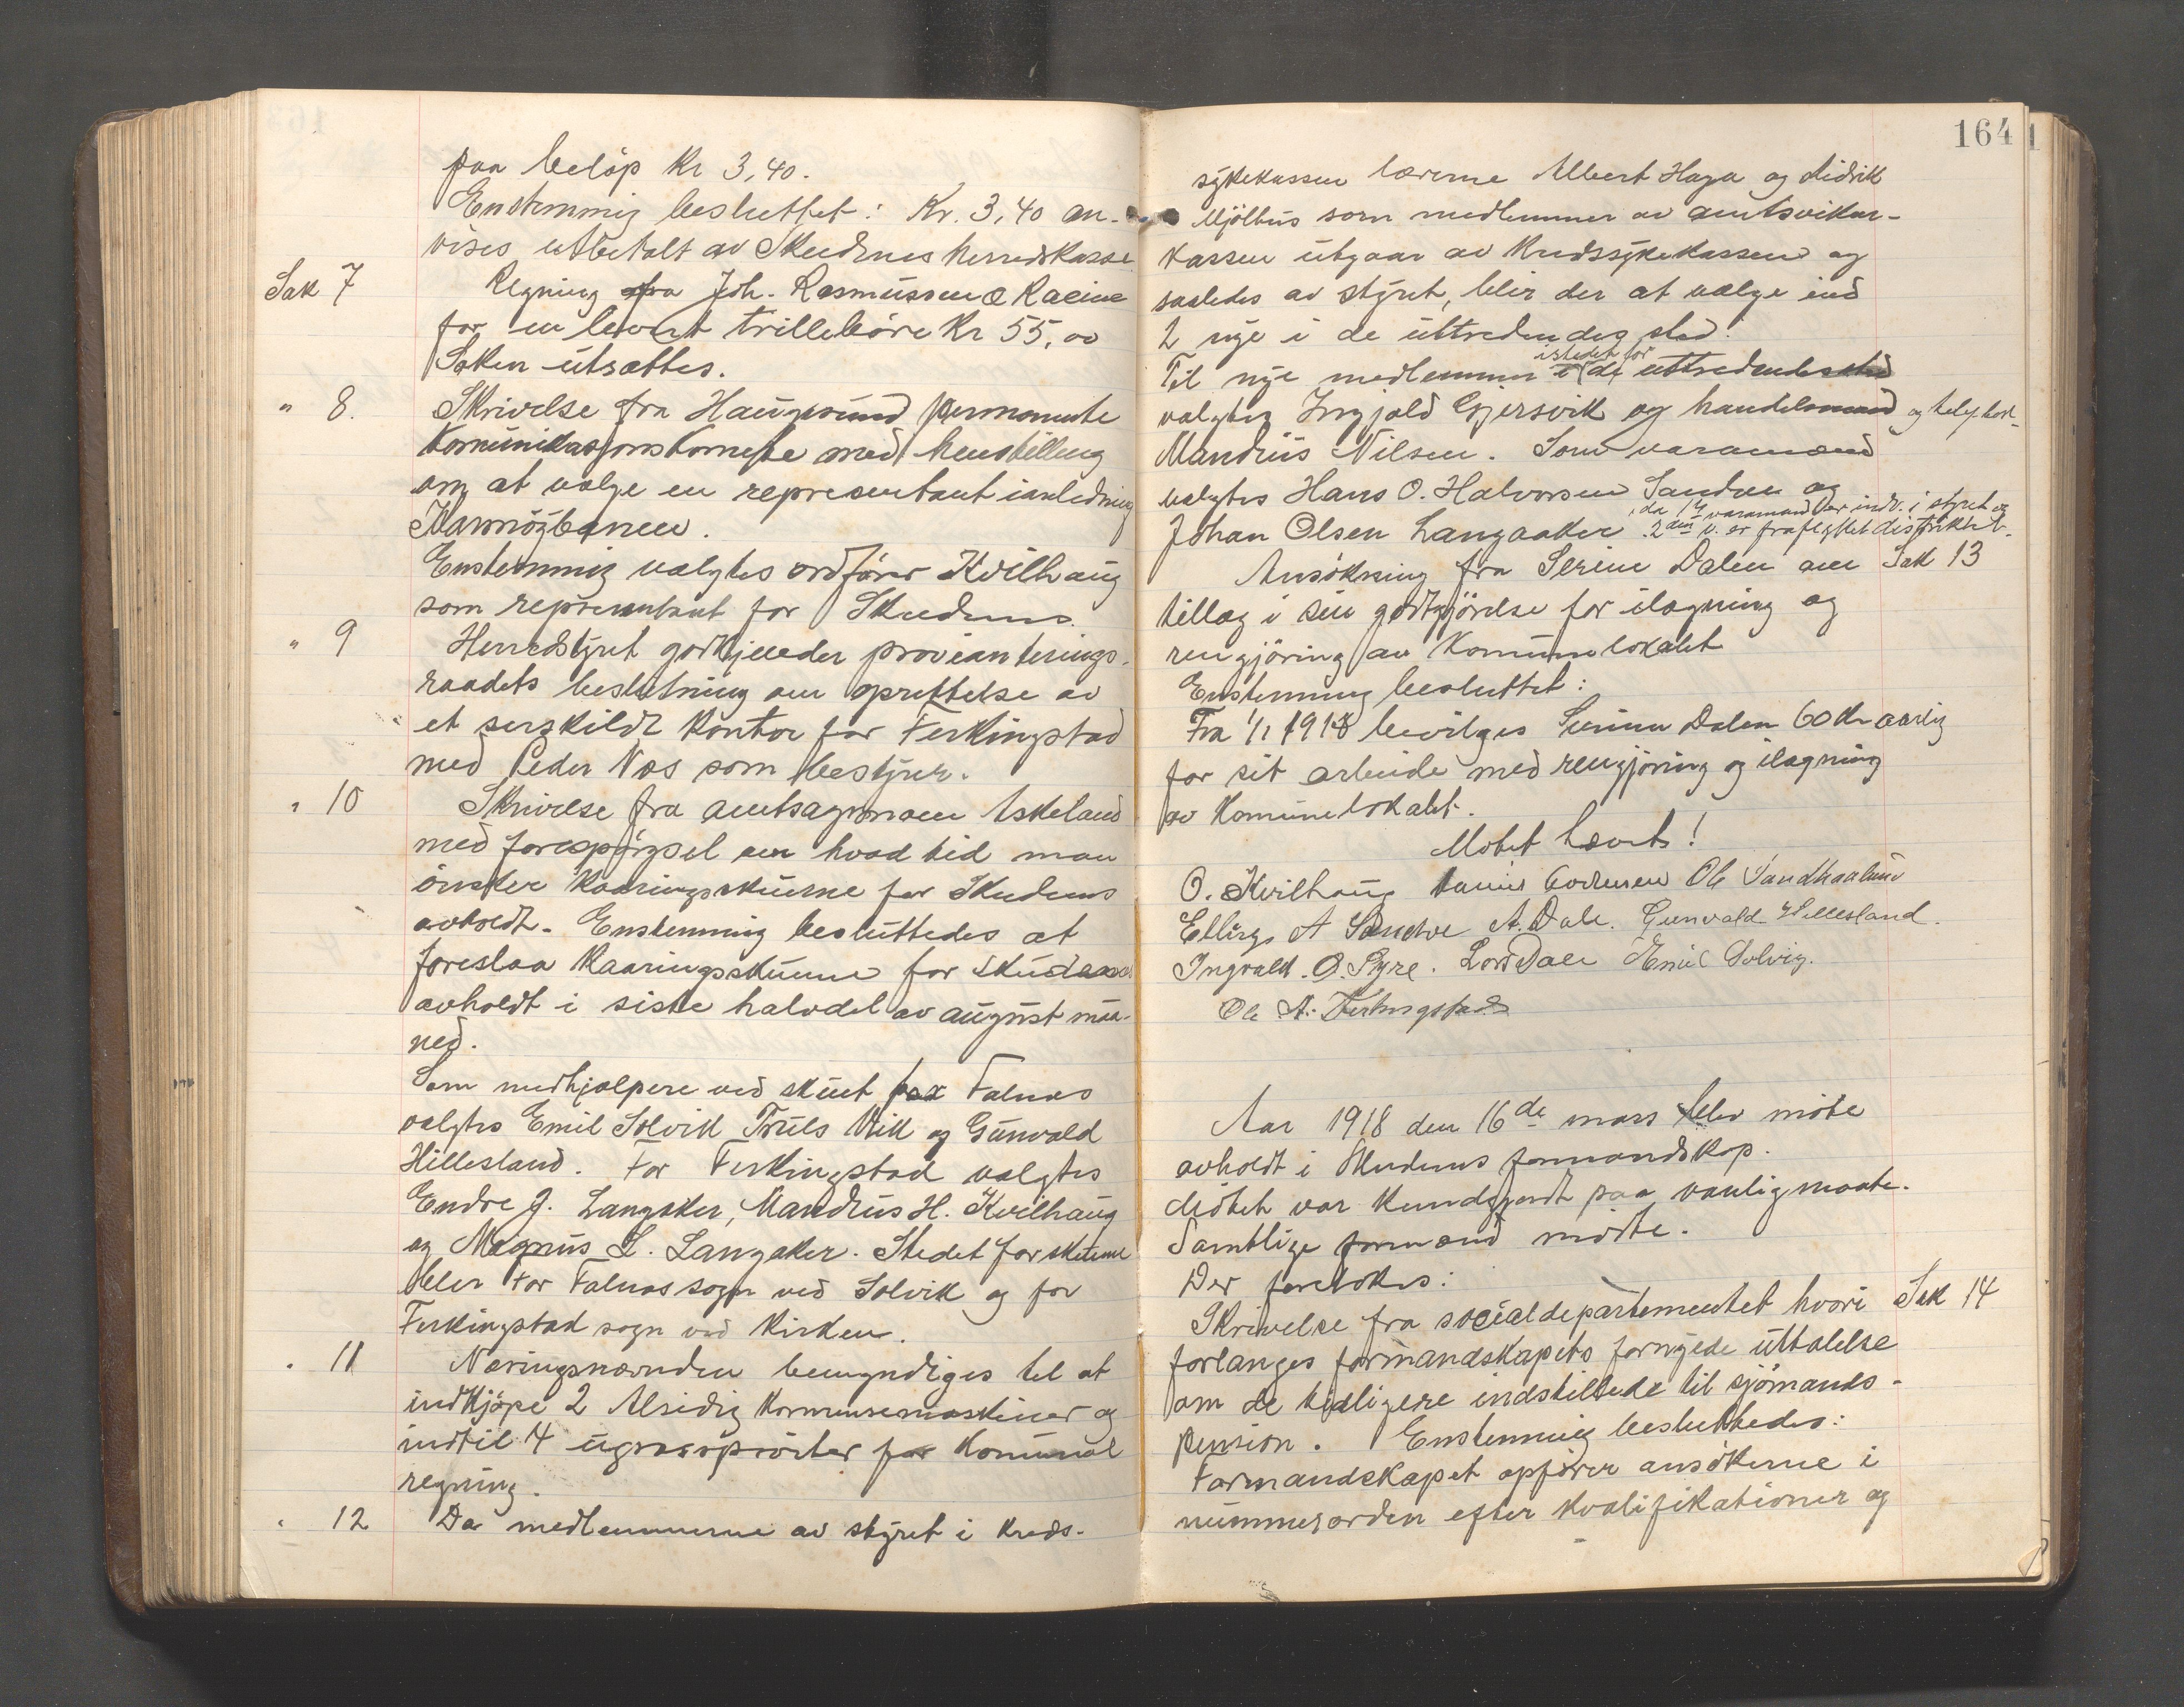 paa beløp Kr 3,40.
Enstemmig besluttet: Kr. 3,40 an-
vises utbetalt av Skudenes herredskasse
Sak 7 Regning fra Joh. Rasmussen & Racine
for en levert trillebøre Kr 55,00
Saken utsættes.
" 8. Skrivelse fra Haugesund permanente
Komunikasjonskomite med henstilling
om at vælge en representant i anledning
Karmøybanen.
Enstemmig valgtes ordfører Kvilhaug
som representant for Skudenes.
" 9 Herredstyret godkjender provianterings-
raadets beslutning om oprettelse av
et serskildt Kontor for Ferkingstad
med Peder Næs som bestyrer.
" 10 Skrivelse fra amtsagronom Askeland
med forespørgsel om hvad tid man
ønsker Kaaringsskuerne for Skudenes
avholdt. Enstemmig besluttedes at
foreslaa Kaaringsskuene for Skudenes
avholdt i siste halvdel av august maa-
ned.
Som medhjælpere ved skuet for Falnes
valgtes Emil Solvik Truls Vik og Gunvald
Hillesland. For Ferkingstad valgtes
Endre J. Langaker, Mandrus H. Kvilhaug
og Magnus L. Langaker. Stedet for skuene
blir for Falnes sogn ved Solvik og for
Ferkingstad sogn ved Kirken.
" 11 Næringsnævnden bemyndiges til at
indkjøpe 2 Alsidig Kornrensemaskiner og
indtil 4 ugræssprøiter for Komunal
regning.
" 12 Da medlemmerne av styret i Kreds-
164
sykekassen lærerne Albert Haga og Didrik
Mjølhus som medlemmer av amtsvikar-
kassen utgaar av Kredssykekassen og
saaledes av styret, blir der at vælge ind
2 nye i de uttrædendes sted.
istedet for
Til nye medlemmer i de uttrædendes sted
valgtes Ingjald Gjersvik og handelsmand og
Mandrus Nilsen. Som varamænd
valgtes Hans O. Halvorsen Sandven og
da 1ste varamand er indv. i styret og
Johan Olsen Langaaker 2den v. er fraflyttet distriktet.
Ansøkning fra Serine Dalen om Sak 13
tillæg i sin godtgjørelse for ilægning og
rengjøring av Komunelokalet
Enstemmig besluttet:
Fra 1/1 1918 bevilges Serine Dalen 60 Kr aarlig
for sit arbeide med rengjøring og ilægning
av Komunelokalet.
Møtet hævet!
O. Kvilhaug Ole Sandhaaland
Elling A Sandve A. Dale. Gunvald Hillesland.
Ingvald. O. Syre. Lars Dale Emil Solvig.
Ole A. Ferkingstad
Aar 1918 den 16de mars blev møte
avholdt i Skudenes formandskap.
Møtet var kundgjordt paa vanlig maate.
Samtlige formænd møtte.
Der foretokes:
Skrivelse fra socialdepartementet hvori Sak 14
forlanges formandskapets fornyede uttalelse
om de tidligere indstillede til sjømands-
pension. Enstemmig besluttedes:
Formandskapet opfører ansøkerne i
nummerorden efter kvalifikationer og